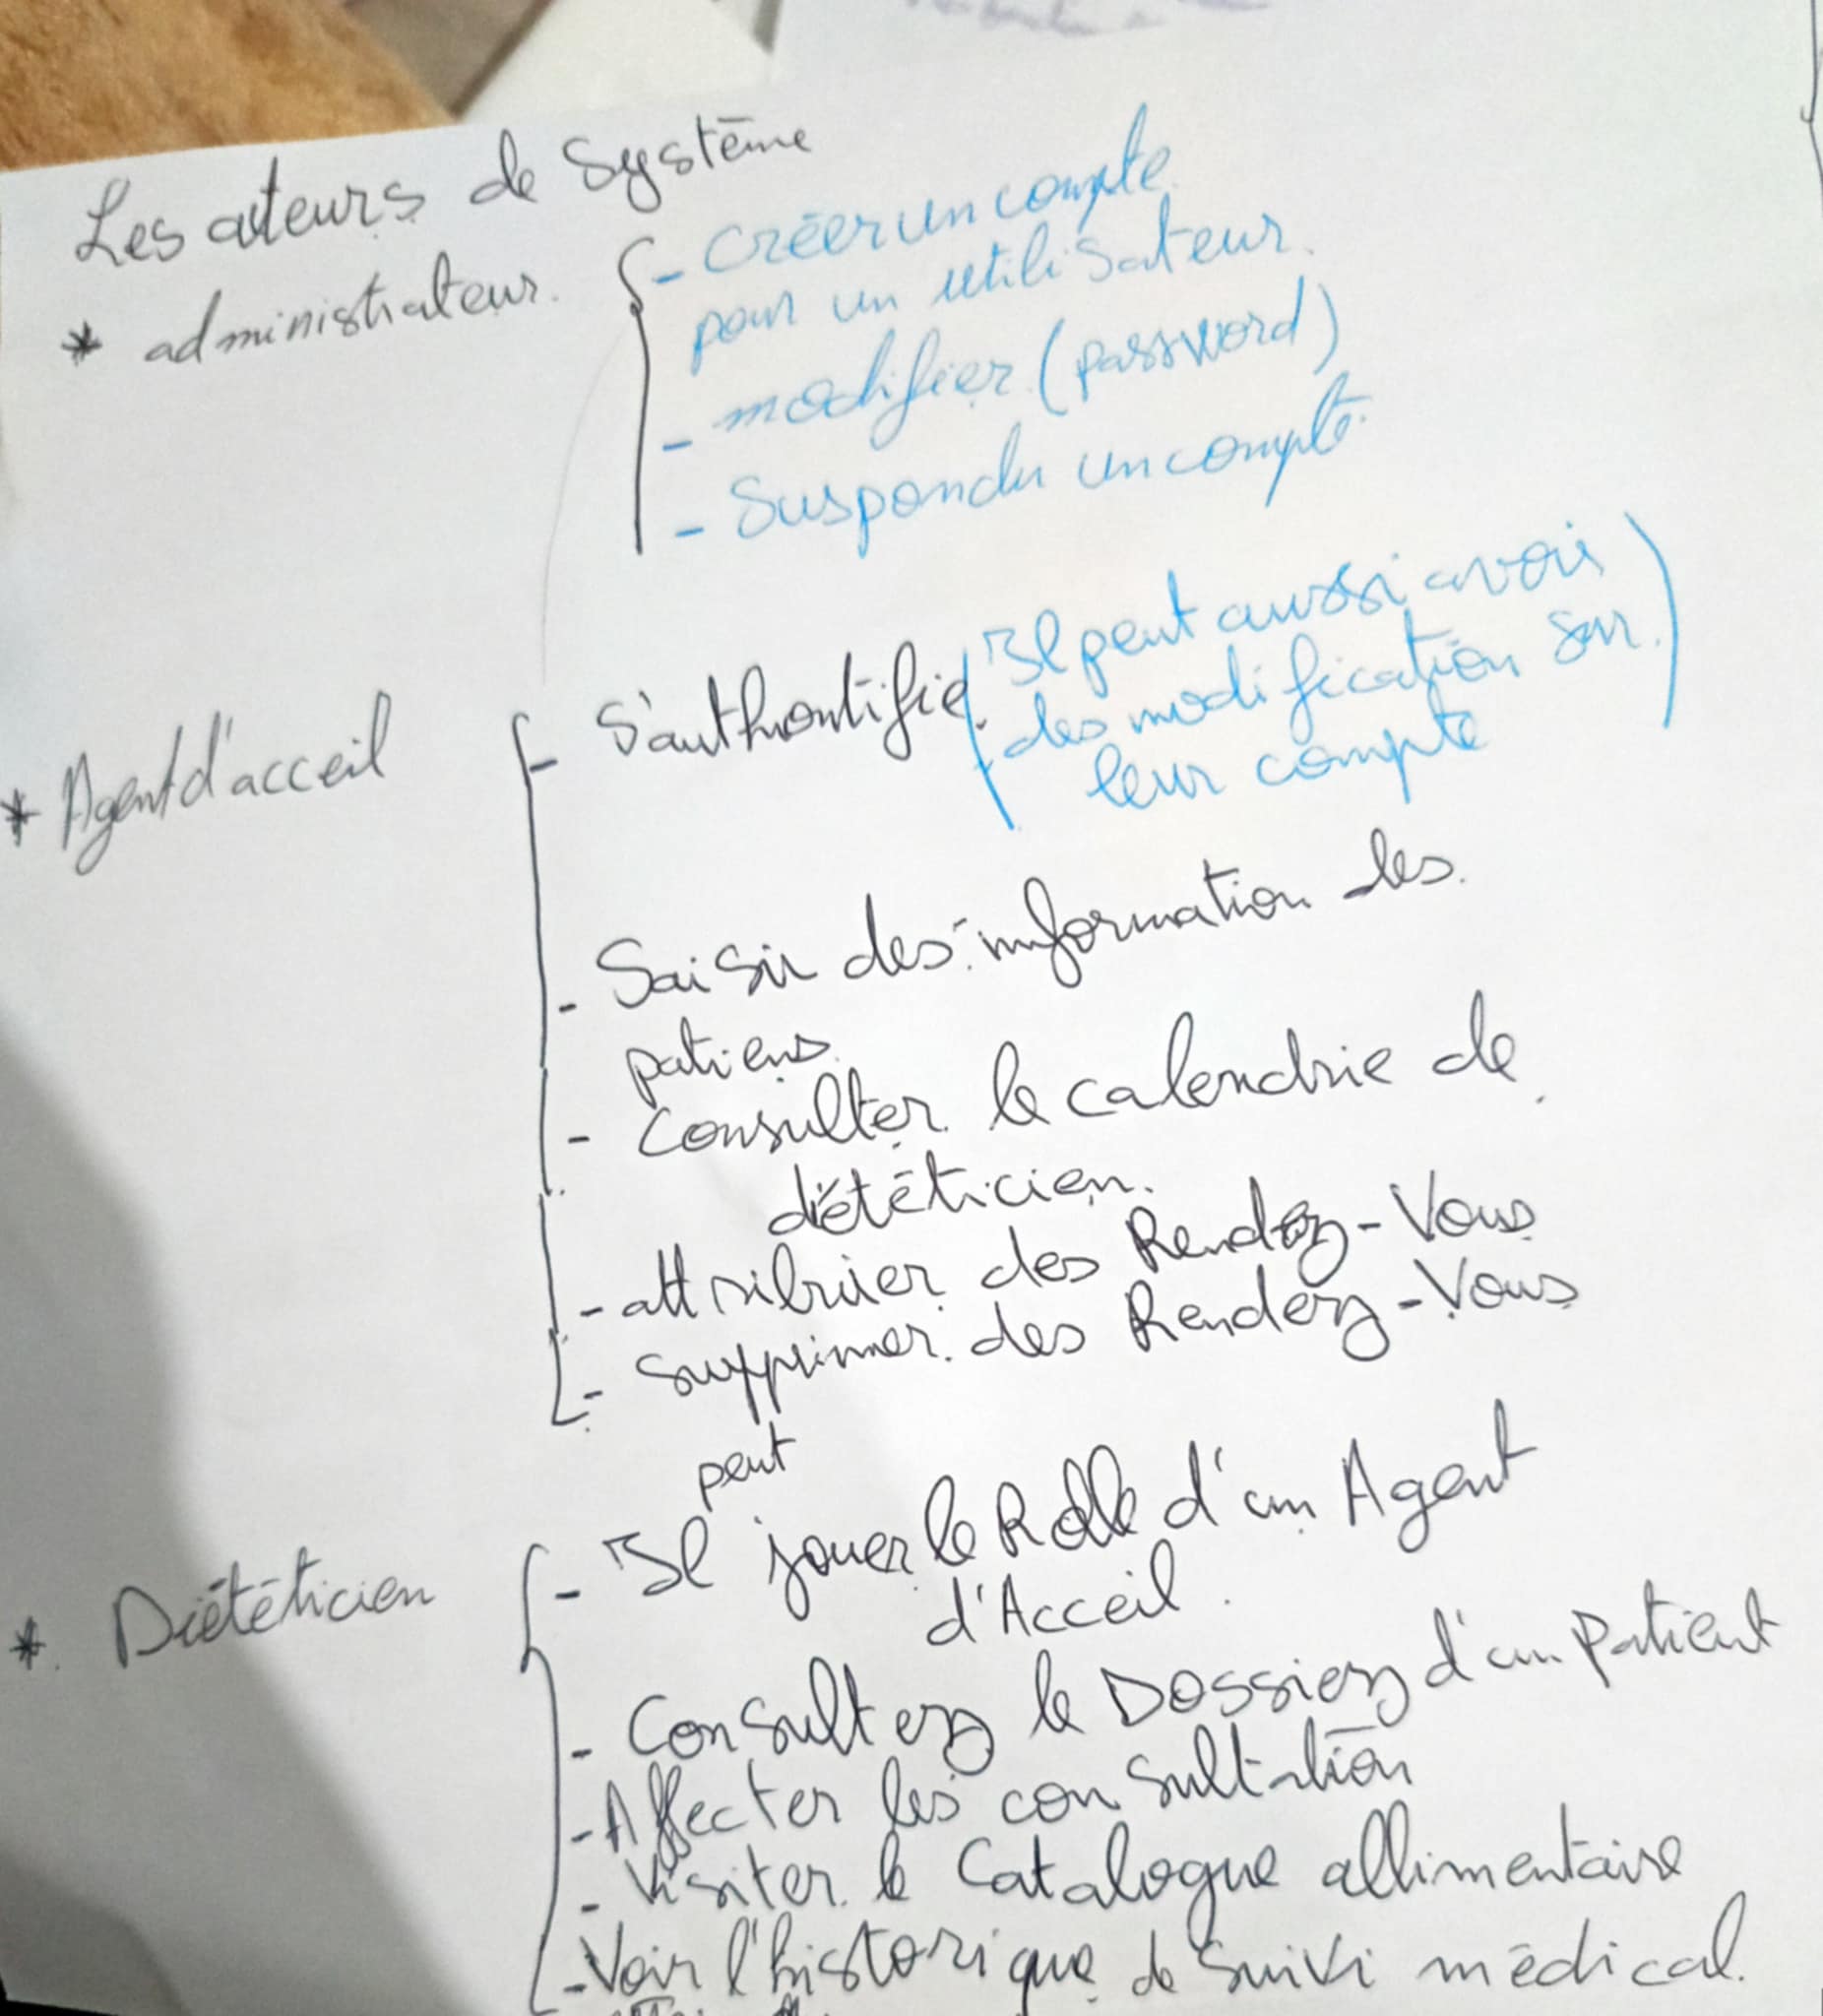 Les acteurs de Système
* administrateur.
- Créer un compte
pour un utilisateur.
- modifier (password)
- Suspondu un compte.
* Agent d'acceil
- S'authontifié. (Il peut aussi avoir
des modification sur
leur compte)
- Saisir des information des
patiens
- Consulter le calendrie de
diététicien.
- attribuier des Rendez-Vous
- Supprimer des Rendez-Vous
* Diététicien
peut
- Il jouer le Rolle d'un Agent
d'Acceil.
- Consulter le Dossier d'un patient
- Affecter les consultation
- Visiter le Catalogue allimentaire
- Voir l'historique de suivi médical.